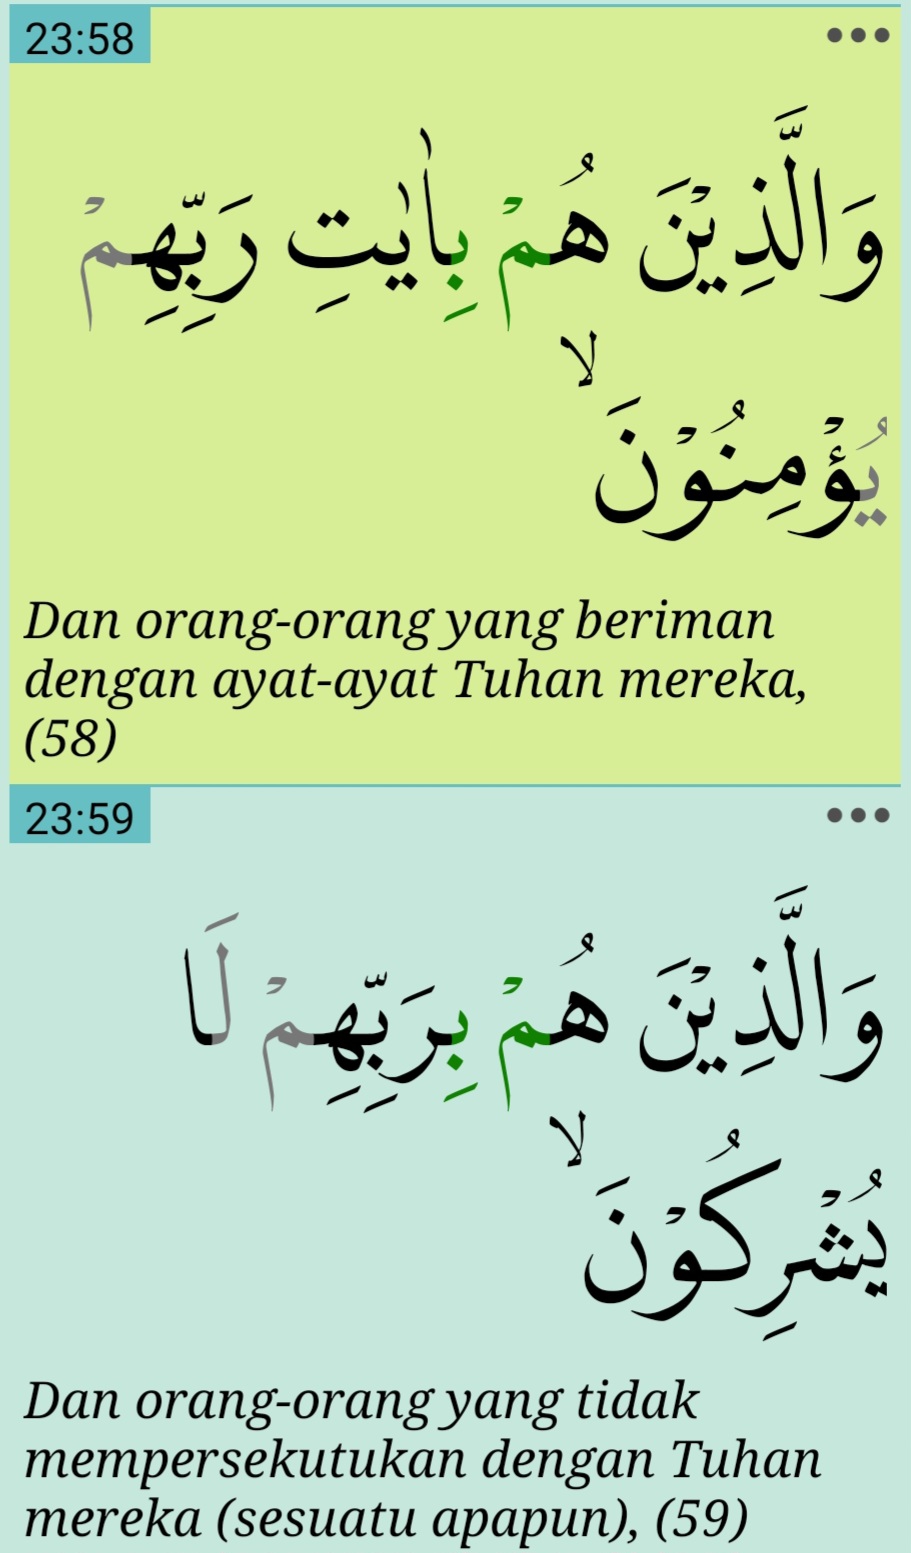 23:58
وَالَّذِيْنَ هُمْ بِاٰيٰتِ رَبِّهِمْ
يُؤْمِنُوْنَ ۙ
Dan orang-orang yang beriman
dengan ayat-ayat Tuhan mereka,
(58)
23:59
وَالَّذِيْنَ هُمْ بِرَبِّهِمْ لَا
يُشْرِكُوْنَ ۙ
Dan orang-orang yang tidak
mempersekutukan dengan Tuhan
mereka (sesuatu apapun), (59)